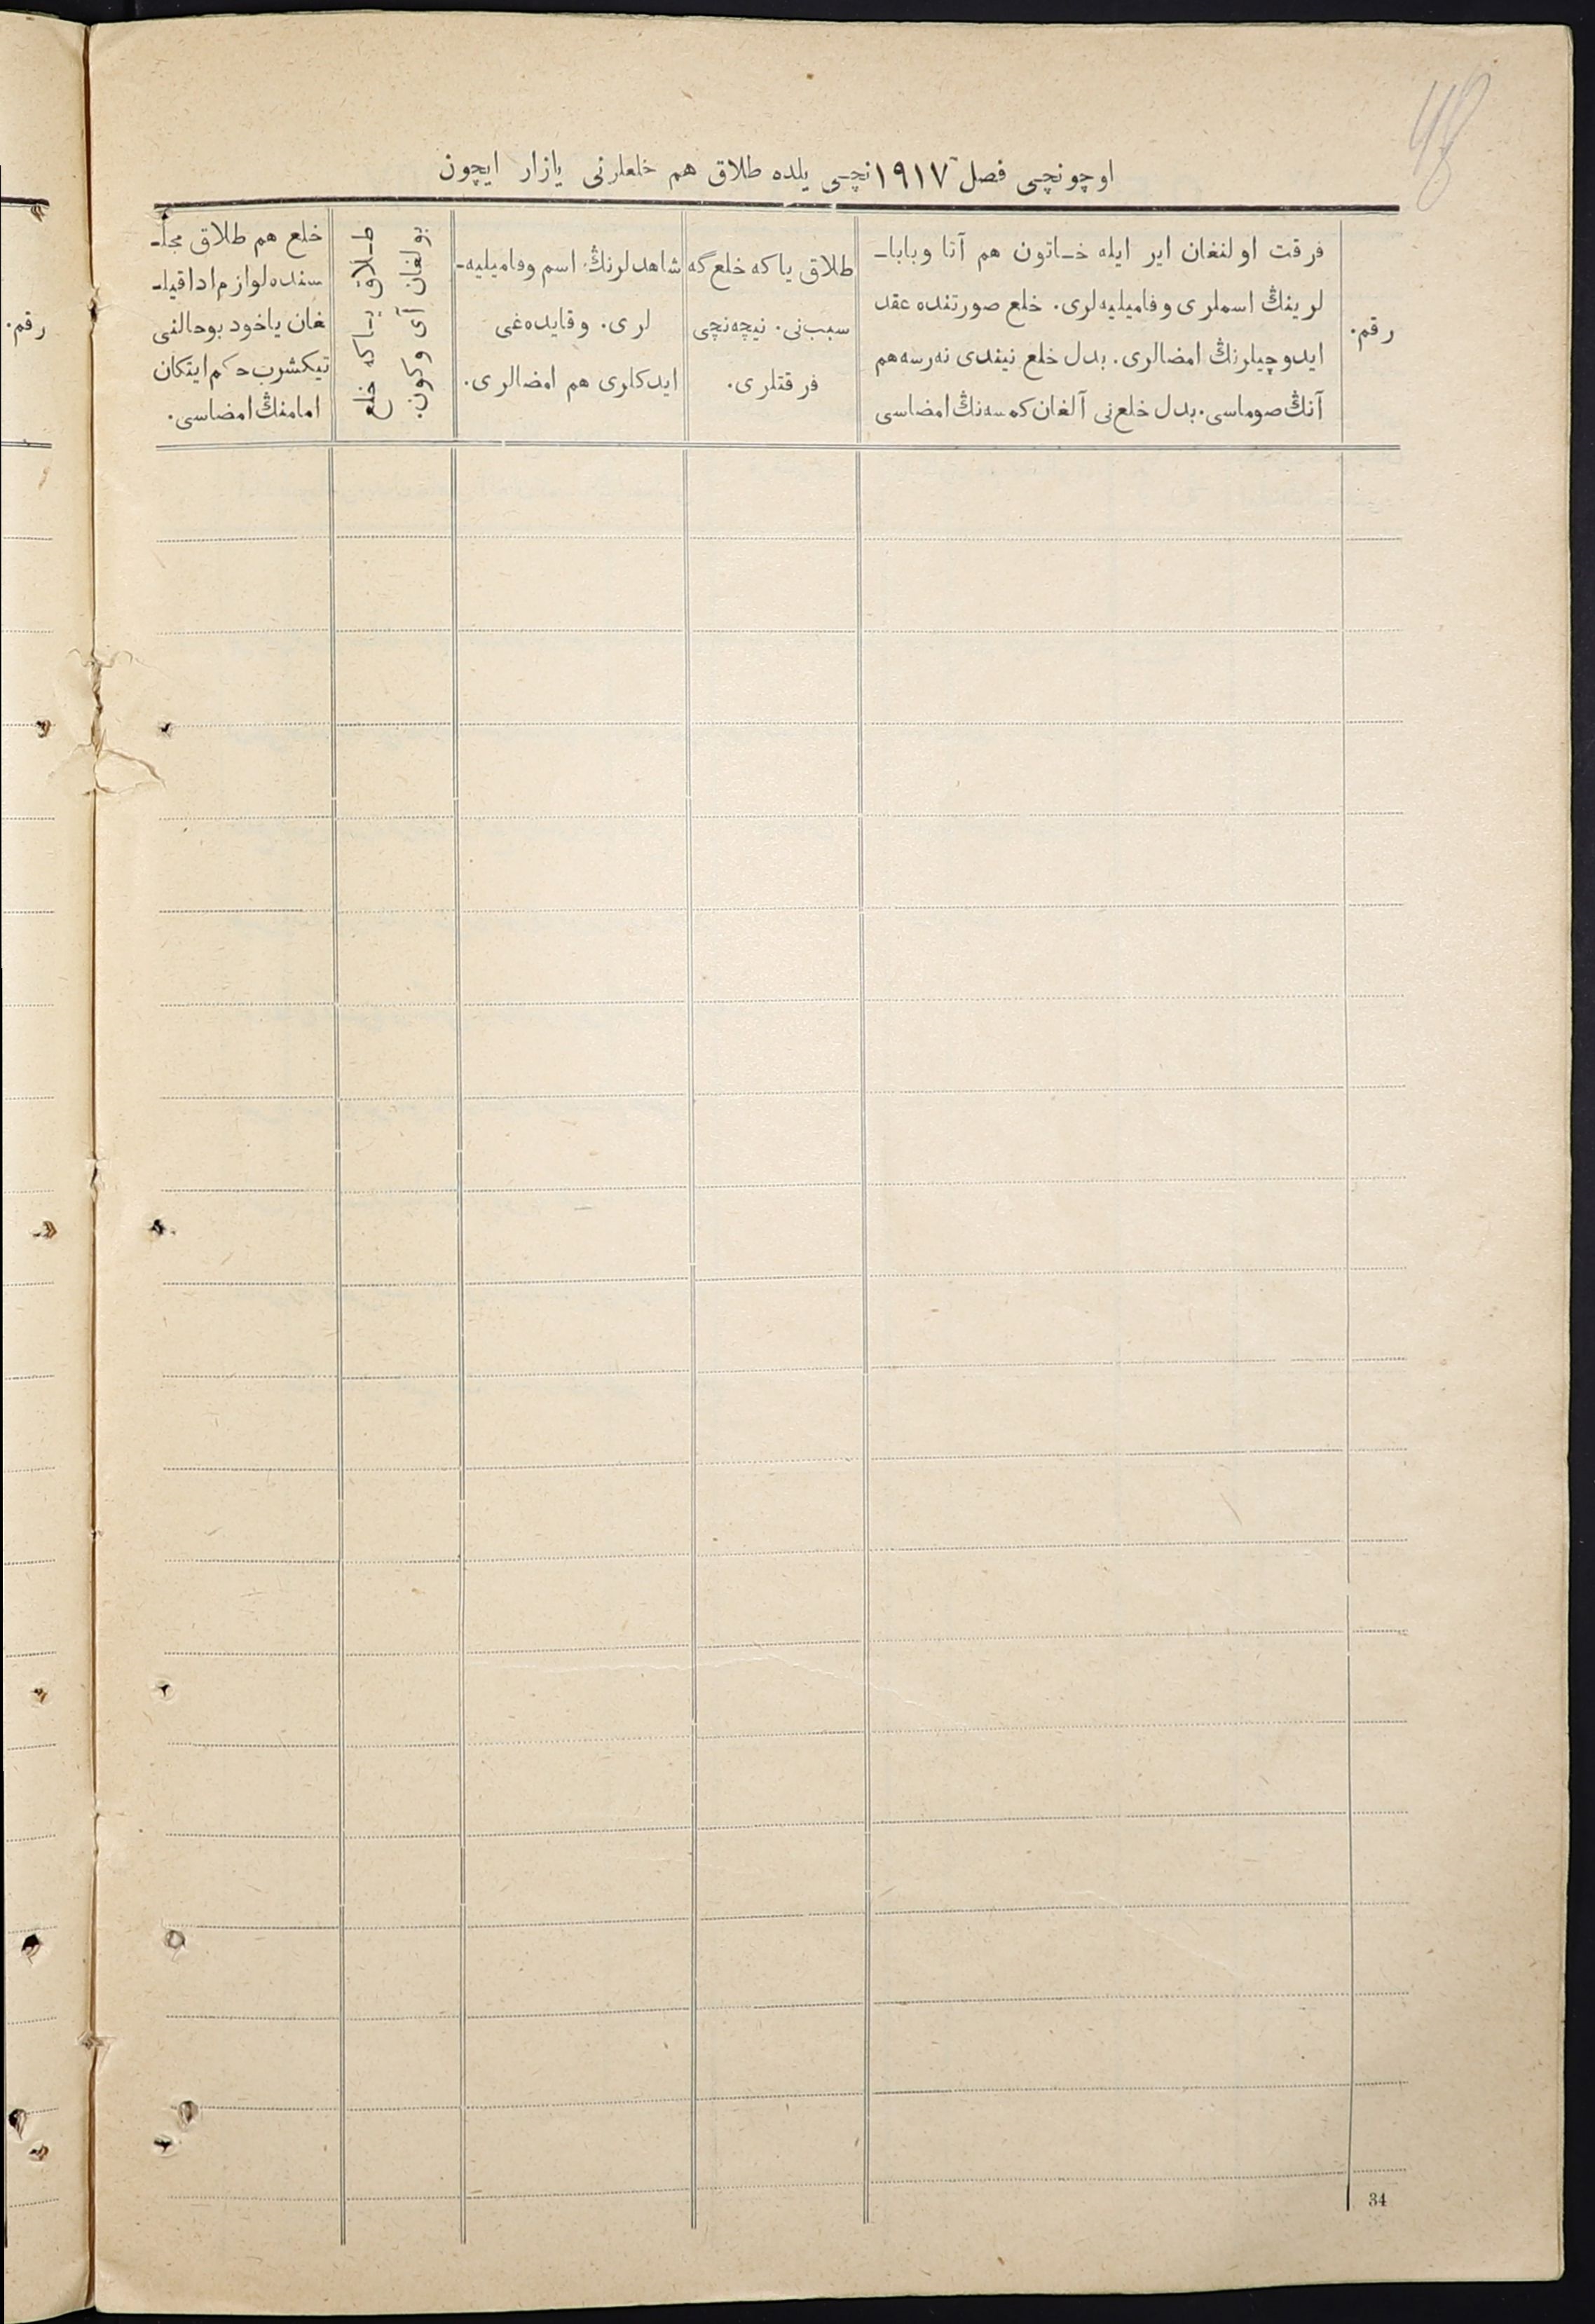 48
اوچونچی فصل ١٩١٧ نچی یلده طلاق هم خلعلرنی یازار ایچون
رقم.
فرقت اولنغان ایر ایله خـاتون هم آتا وبابا-
لرینڭ اسملری وفامیلیه‌لری. خلع صورتنده عقد
ایدوچیلرنڭ امضالری. بدل خلع نیندی نه‌رسه هم
آنڭ صوماسی. بدل خلع‌نی آلغان كمسه‌نڭ امضاسی
طلاق یاكه خلع‌گه
سبب‌نی. نیچه‌نچی
فرقتلری.
شاهدلرنڭ اسم وفامیلیه-
لری. وقایده‌غی
ایدكلری هم امضالری.
طـلاق یـاكه خلع
بولغان آی وكون.
خلع هم طلاق مجلـ-
سنده لوازم اداقیلـ-
غان یاخود بوحالنی
تیكشرب حكم ایتكان
امامنڭ امضاسی.
رقم.
34